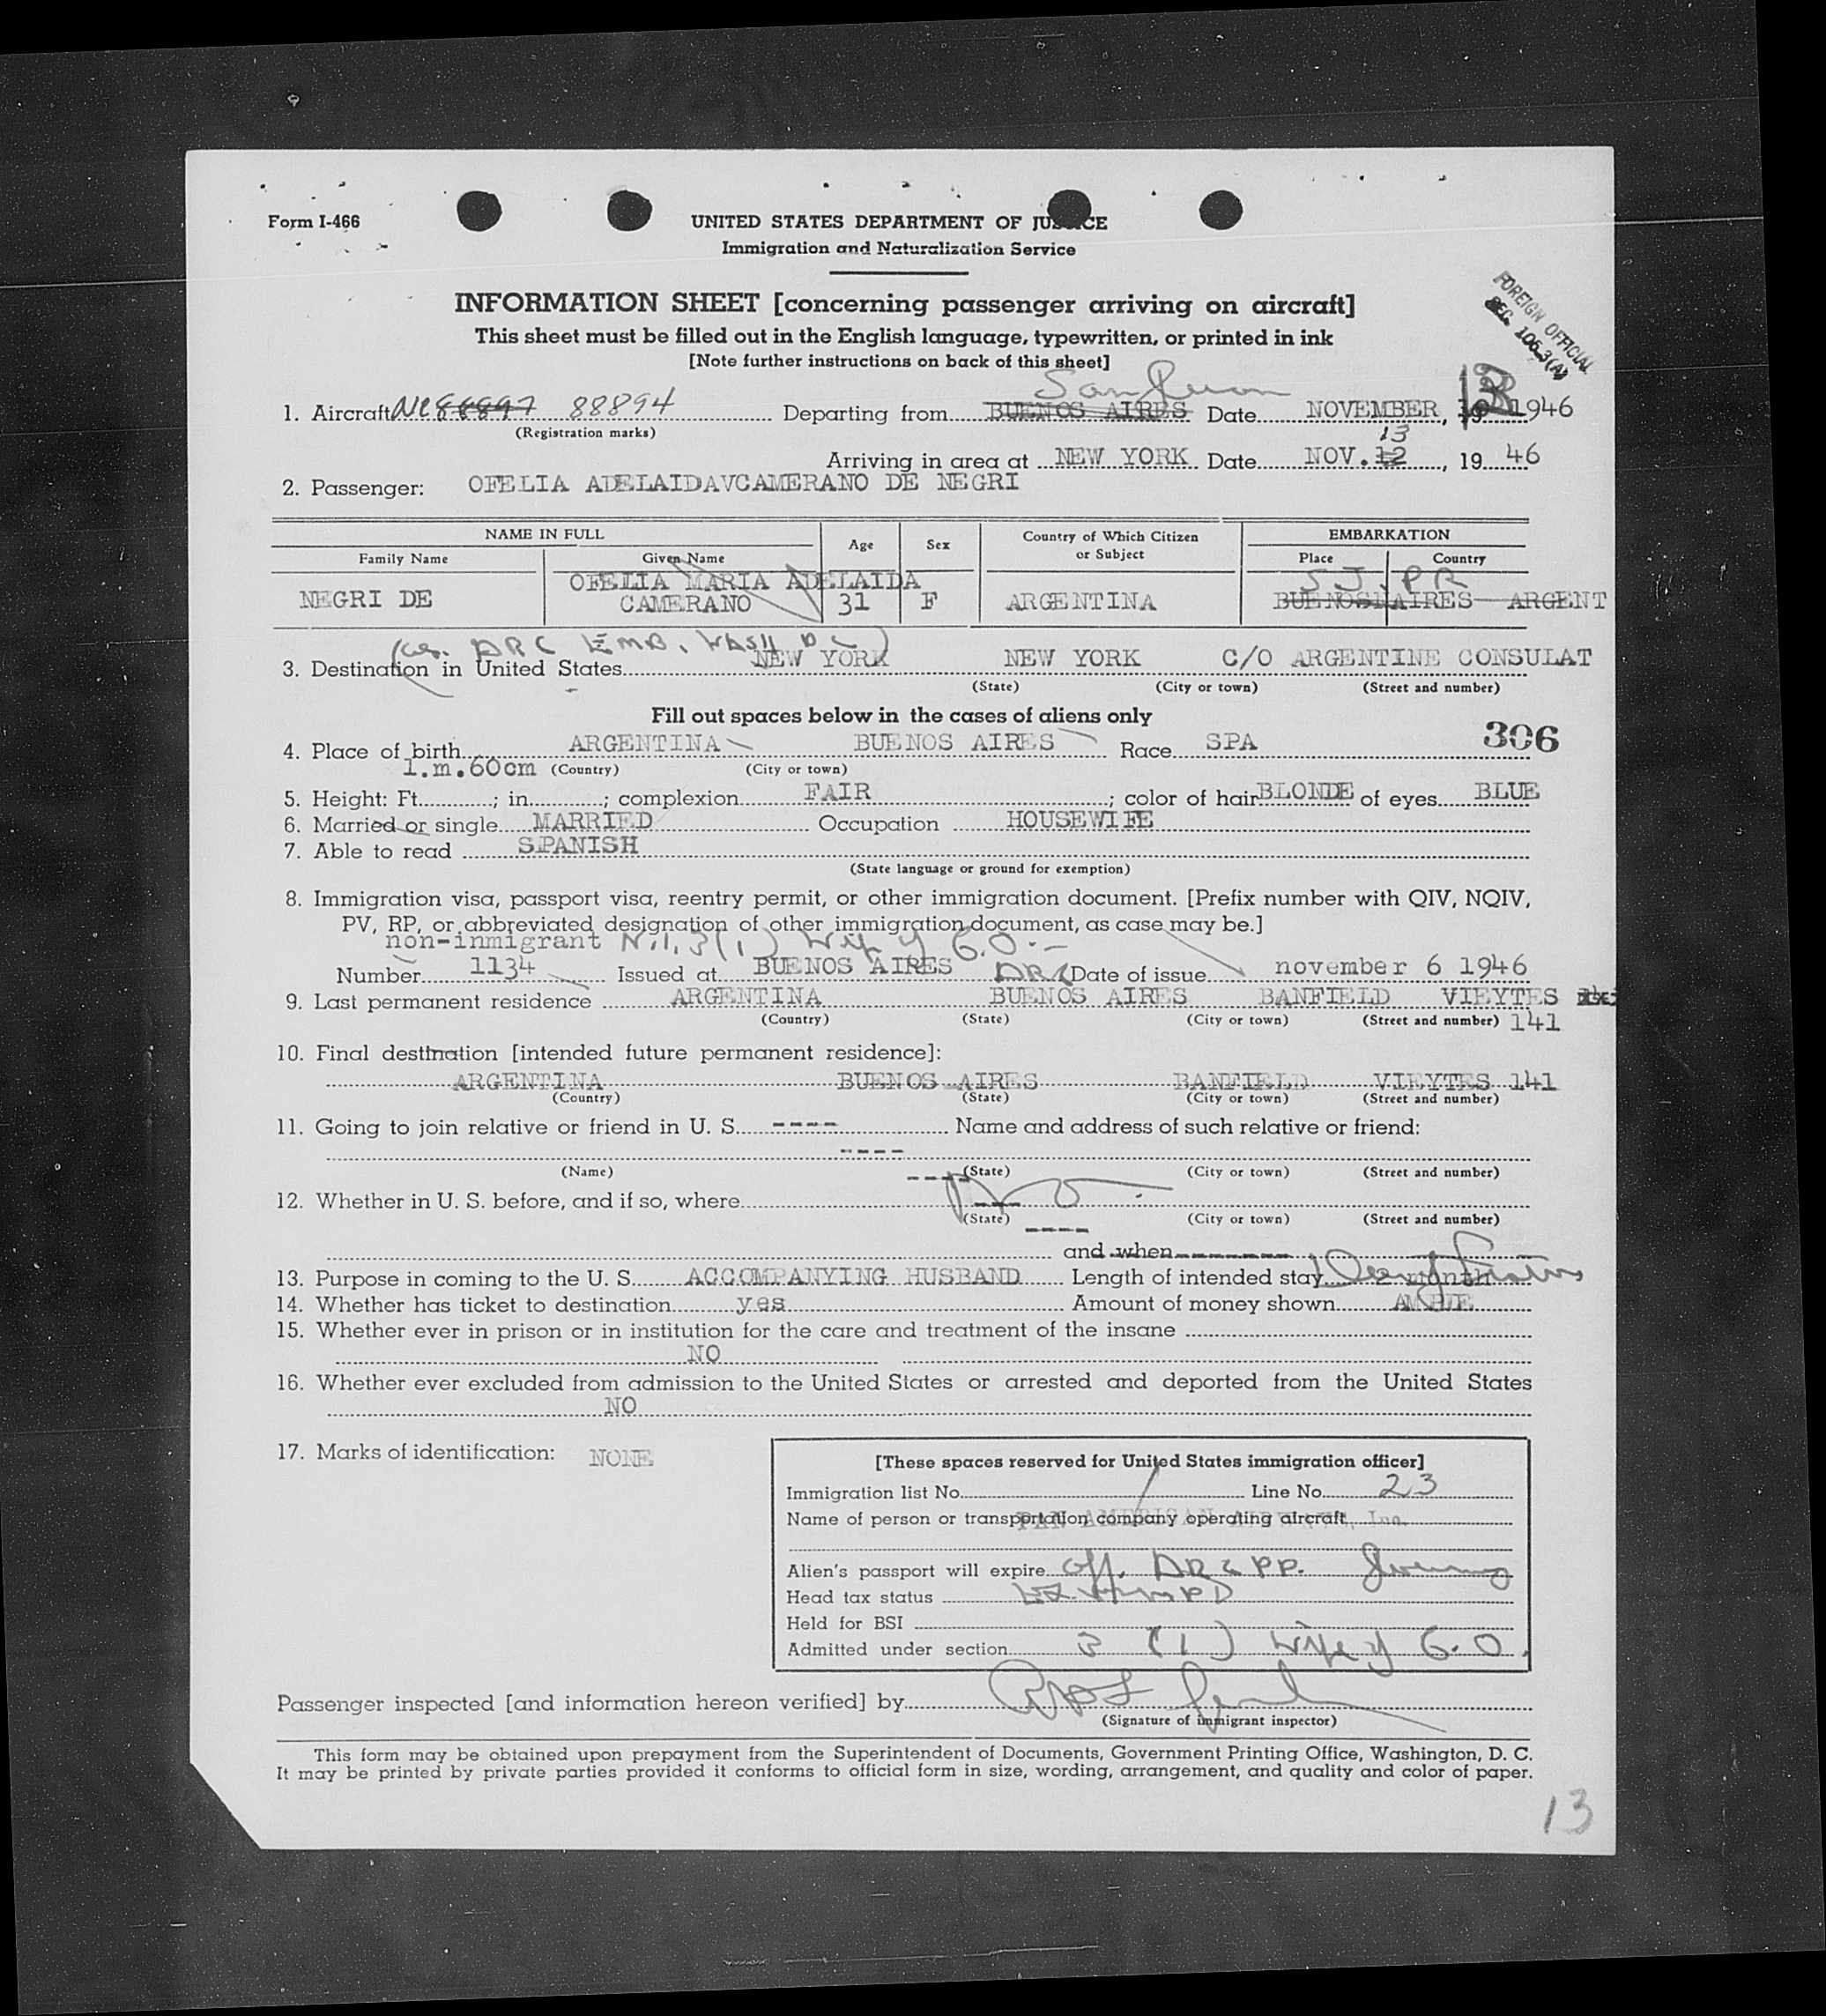 Form I-466
UNITED STATES DEPARTMENT OF JUSTICE
Immigration and Naturalization Service
INFORMATION SHEET [concerning passenger arriving on aircraft]
This sheet must be filled out in the English language, typewritten, or printed in ink
[Note further instructions on back of this sheet]
FOREIGN OFFICIAL
SEC. 105.3(A)
San Juan
1. Aircraft NC 88897 88894 Departing from BUENOS AIRES Date NOVEMBER, 1946
(Registration marks)
13
Arriving in area at NEW YORK Date NOV. 12, 19 46
2. Passenger: OFELIA ADELAIDAVCAMERANO DE NEGRI
NAME IN FULL Age Sex Country of Which Citizen or Subject EMBARKATION
Family Name Given Name Place Country
OFELIA MARIA ADELAIDA SJ. PR
NEGRI DE CAMERANO 31 F ARGENTINA BUENOS AIRES ARGENT
EMB. WASH D C)
3. Destination in United States NEW YORK NEW YORK C/O ARGENTINE CONSULAT
(State) (City or town) (Street and number)
Fill out spaces below in the cases of aliens only
306
4. Place of birth ARGENTINA BUENOS AIRES Race SPA
1.m.60cm (Country) (City or town)
5. Height: Ft. ; in. ; complexion FAIR ; color of hair BLONDE of eyes BLUE
6. Married or single MARRIED Occupation HOUSEWIFE
7. Able to read SPANISH
(State language or ground for exemption)
8. Immigration visa, passport visa, reentry permit, or other immigration document. [Prefix number with QIV, NQIV,
PV, RP, or abbreviated designation of other immigration document, as case may be.]
non-inmigrant 3(1) Wife of G.O.
Number 1134 Issued at BUENOS AIRES Date of issue november 6 1946
9. Last permanent residence ARGENTINA BUENOS AIRES BANFIELD VIEYTES
(Country) (State) (City or town) (Street and number) 141
10. Final destination [intended future permanent residence]:
ARGENTINA BUENOS AIRES BANFIELD VIEYTES 141
(Country) (State) (City or town) (Street and number)
11. Going to join relative or friend in U. S. ---- Name and address of such relative or friend:
----
(Name) (State) (City or town) (Street and number)
12. Whether in U. S. before, and if so, where No
(State) (City or town) (Street and number)
and when -------
13. Purpose in coming to the U. S. ACCOMPANYING HUSBAND Length of intended stay
14. Whether has ticket to destination yes Amount of money shown AMPLE
15. Whether ever in prison or in institution for the care and treatment of the insane
NO
16. Whether ever excluded from admission to the United States or arrested and deported from the United States
NO
17. Marks of identification: NONE
[These spaces reserved for United States immigration officer]
Immigration list No. / Line No. 23
Name of person or transportation company operating aircraft
PAN AMERICAN AIRWAYS, Inc.
Alien's passport will expire Off. PP.
Head tax status
Held for BSI
Admitted under section 3 (1) wife of G.O.
Passenger inspected [and information hereon verified] by
(Signature of immigrant inspector)
This form may be obtained upon prepayment from the Superintendent of Documents, Government Printing Office, Washington, D. C.
It may be printed by private parties provided it conforms to official form in size, wording, arrangement, and quality and color of paper.
13